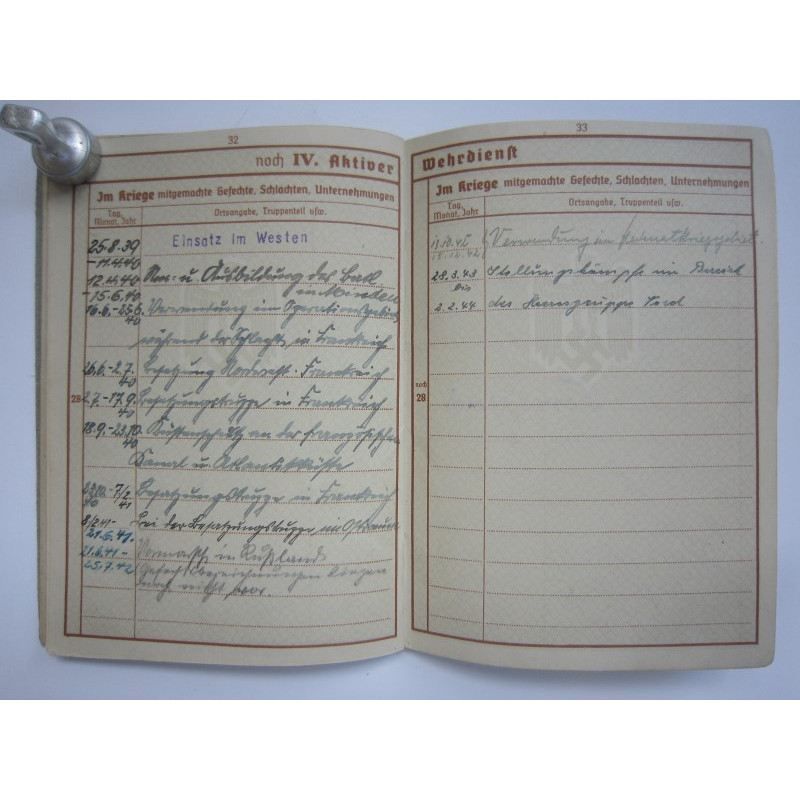 32
noch IV. Aktiver
Im Kriege mitgemachte Gefechte, Schlachten, Unternehmungen
Tag, Monat, Jahr
Ortsangabe, Truppenteil usw.
25.8.39 Einsatz im Westen
-11.4.40
12.4.40 u. Ausbildung des Batl.
-15.6.40 in Minden
16.6.-25.6. Verwendung im Operationsgebiet
40
während der Schlacht in Frankreich
26.6.-2.7. Besatzung Nordwest-Frankreich
40
28
2.7.-17.9. Besatzungstruppe in Frankreich
40
18.9.-23.10. Küstenschutz an der französischen
40
Kanal u. Atlantikküste
-7/2 Besatzungstruppe in Frankreich
40 41
8/2 41- Bei der Besatzungstruppe im
21.6.41.
21.6.41- Vormarsch in Rußland
25.7.42 Gefechtsbezeichnungen liegen
noch nicht vor.
33
Wehrdienst
Im Kriege mitgemachte Gefechte, Schlachten, Unternehmungen
Tag, Monat, Jahr
Ortsangabe, Truppenteil usw.
Verwendung im Heimatkriegsgebiet
28.3.43 Stellungskämpfe im Bereich
bis
2.2.44 der Heeresgruppe Nord
noch
28